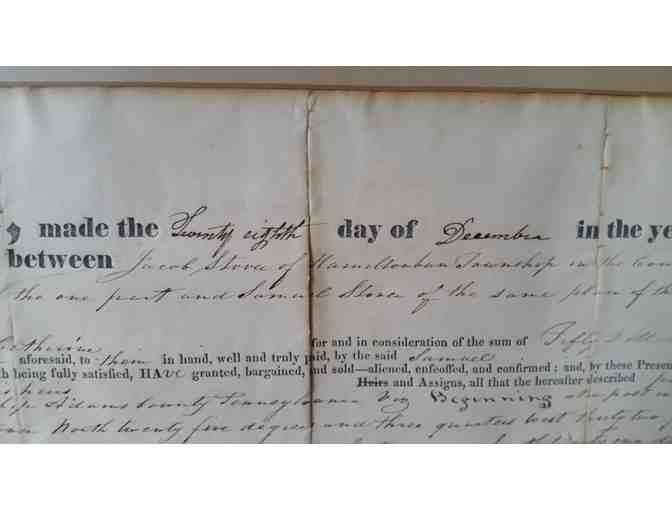 made the Twenty eighth day of December in the ye
between Jacob Stover of Hamiltonban Township in the Coun
the one part and Samuel Stover of the same place of th
Catherine for and in consideration of the sum of Fifty Doll
aforesaid, to them in hand, well and truly paid, by the said Samuel
th being fully satisfied, HAVE granted, bargained, and sold—aliened, enfeoffed, and confirmed; and, by these Presen
his heirs Heirs and Assigns, all that the hereafter described
ship Adams County Pennsylvania Viz Beginning at a post
North twenty five degrees and three quarters west